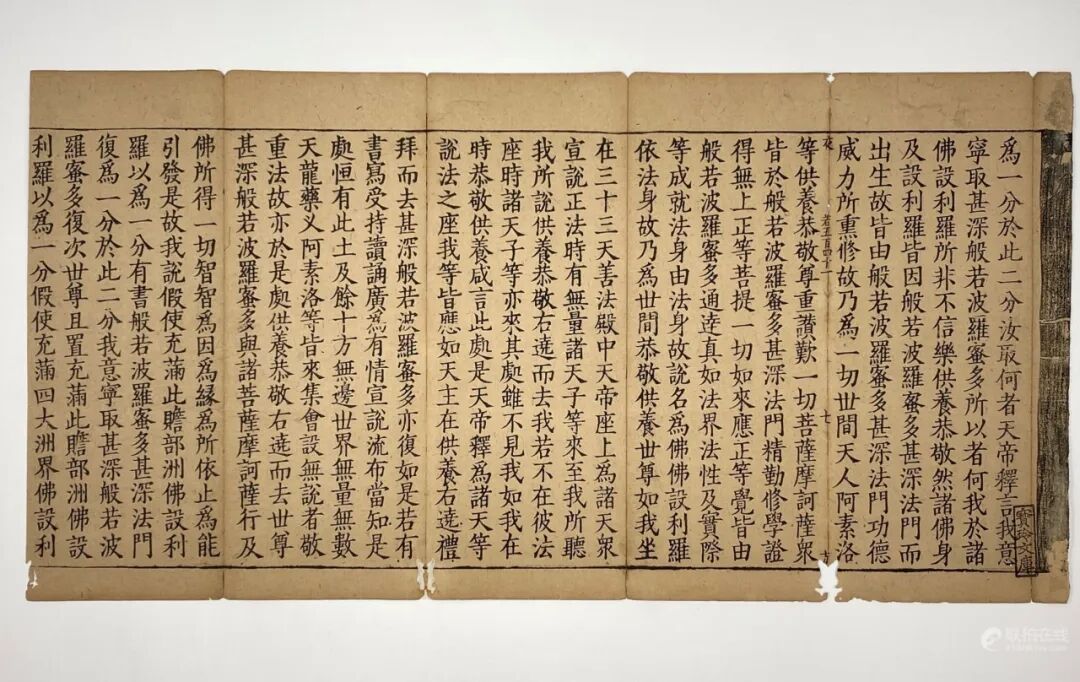 為一分於此二分汝取何者天帝釋言我意
寧取甚深般若波羅蜜多所以者何我於諸
佛設利羅所非不信樂供養恭敬然諸佛身
及設利羅皆因般若波羅蜜多甚深法門而
出生故皆由般若波羅蜜多甚深法門功德
威力所熏修故乃為一切世間天人阿素洛
七
等供養恭敬尊重讚歎一切菩薩摩訶薩衆
皆於般若波羅蜜多甚深法門精勤修學證
得無上正等菩提一切如來應正等覺皆由
般若波羅蜜多通達真如法界法性及實際
等成就法身由法身故說名爲佛佛設利羅
依法身故乃爲世間恭敬供養世尊如我坐
在三十三天善法殿中天帝座上爲諸天衆
宣說正法時有無量諸天子等來至我所聽
我所說供養恭敬右遶而去我若不在彼法
座時諸天子等亦來其處雖不見我如我在
時恭敬供養咸言此處是天帝釋爲諸天等
說法之座我等皆應如天王在供養右遶禮
拜而去甚深般若波羅蜜多亦復如是若有
書寫受持讀誦廣爲有情宣說流布當知是
處恒有此土及餘十方無邊世界無量無數
天龍藥叉阿素洛等皆來集會設無說者敬
重法故亦於是處供養恭敬右遶而去世尊
甚深般若波羅蜜多與諸菩薩摩訶薩行及
佛所得一切智智爲因爲緣爲所依止爲能
引發是故我說假使充滿此贍部洲佛設利
羅以爲一分有書般若波羅蜜多甚深法門
復爲一分於此二分我意寧取甚深般若波
羅蜜多復次世尊且置充滿此贍部洲佛設
利羅以爲一分假使充滿四大洲界佛設利
寶玲文庫
联拍在线